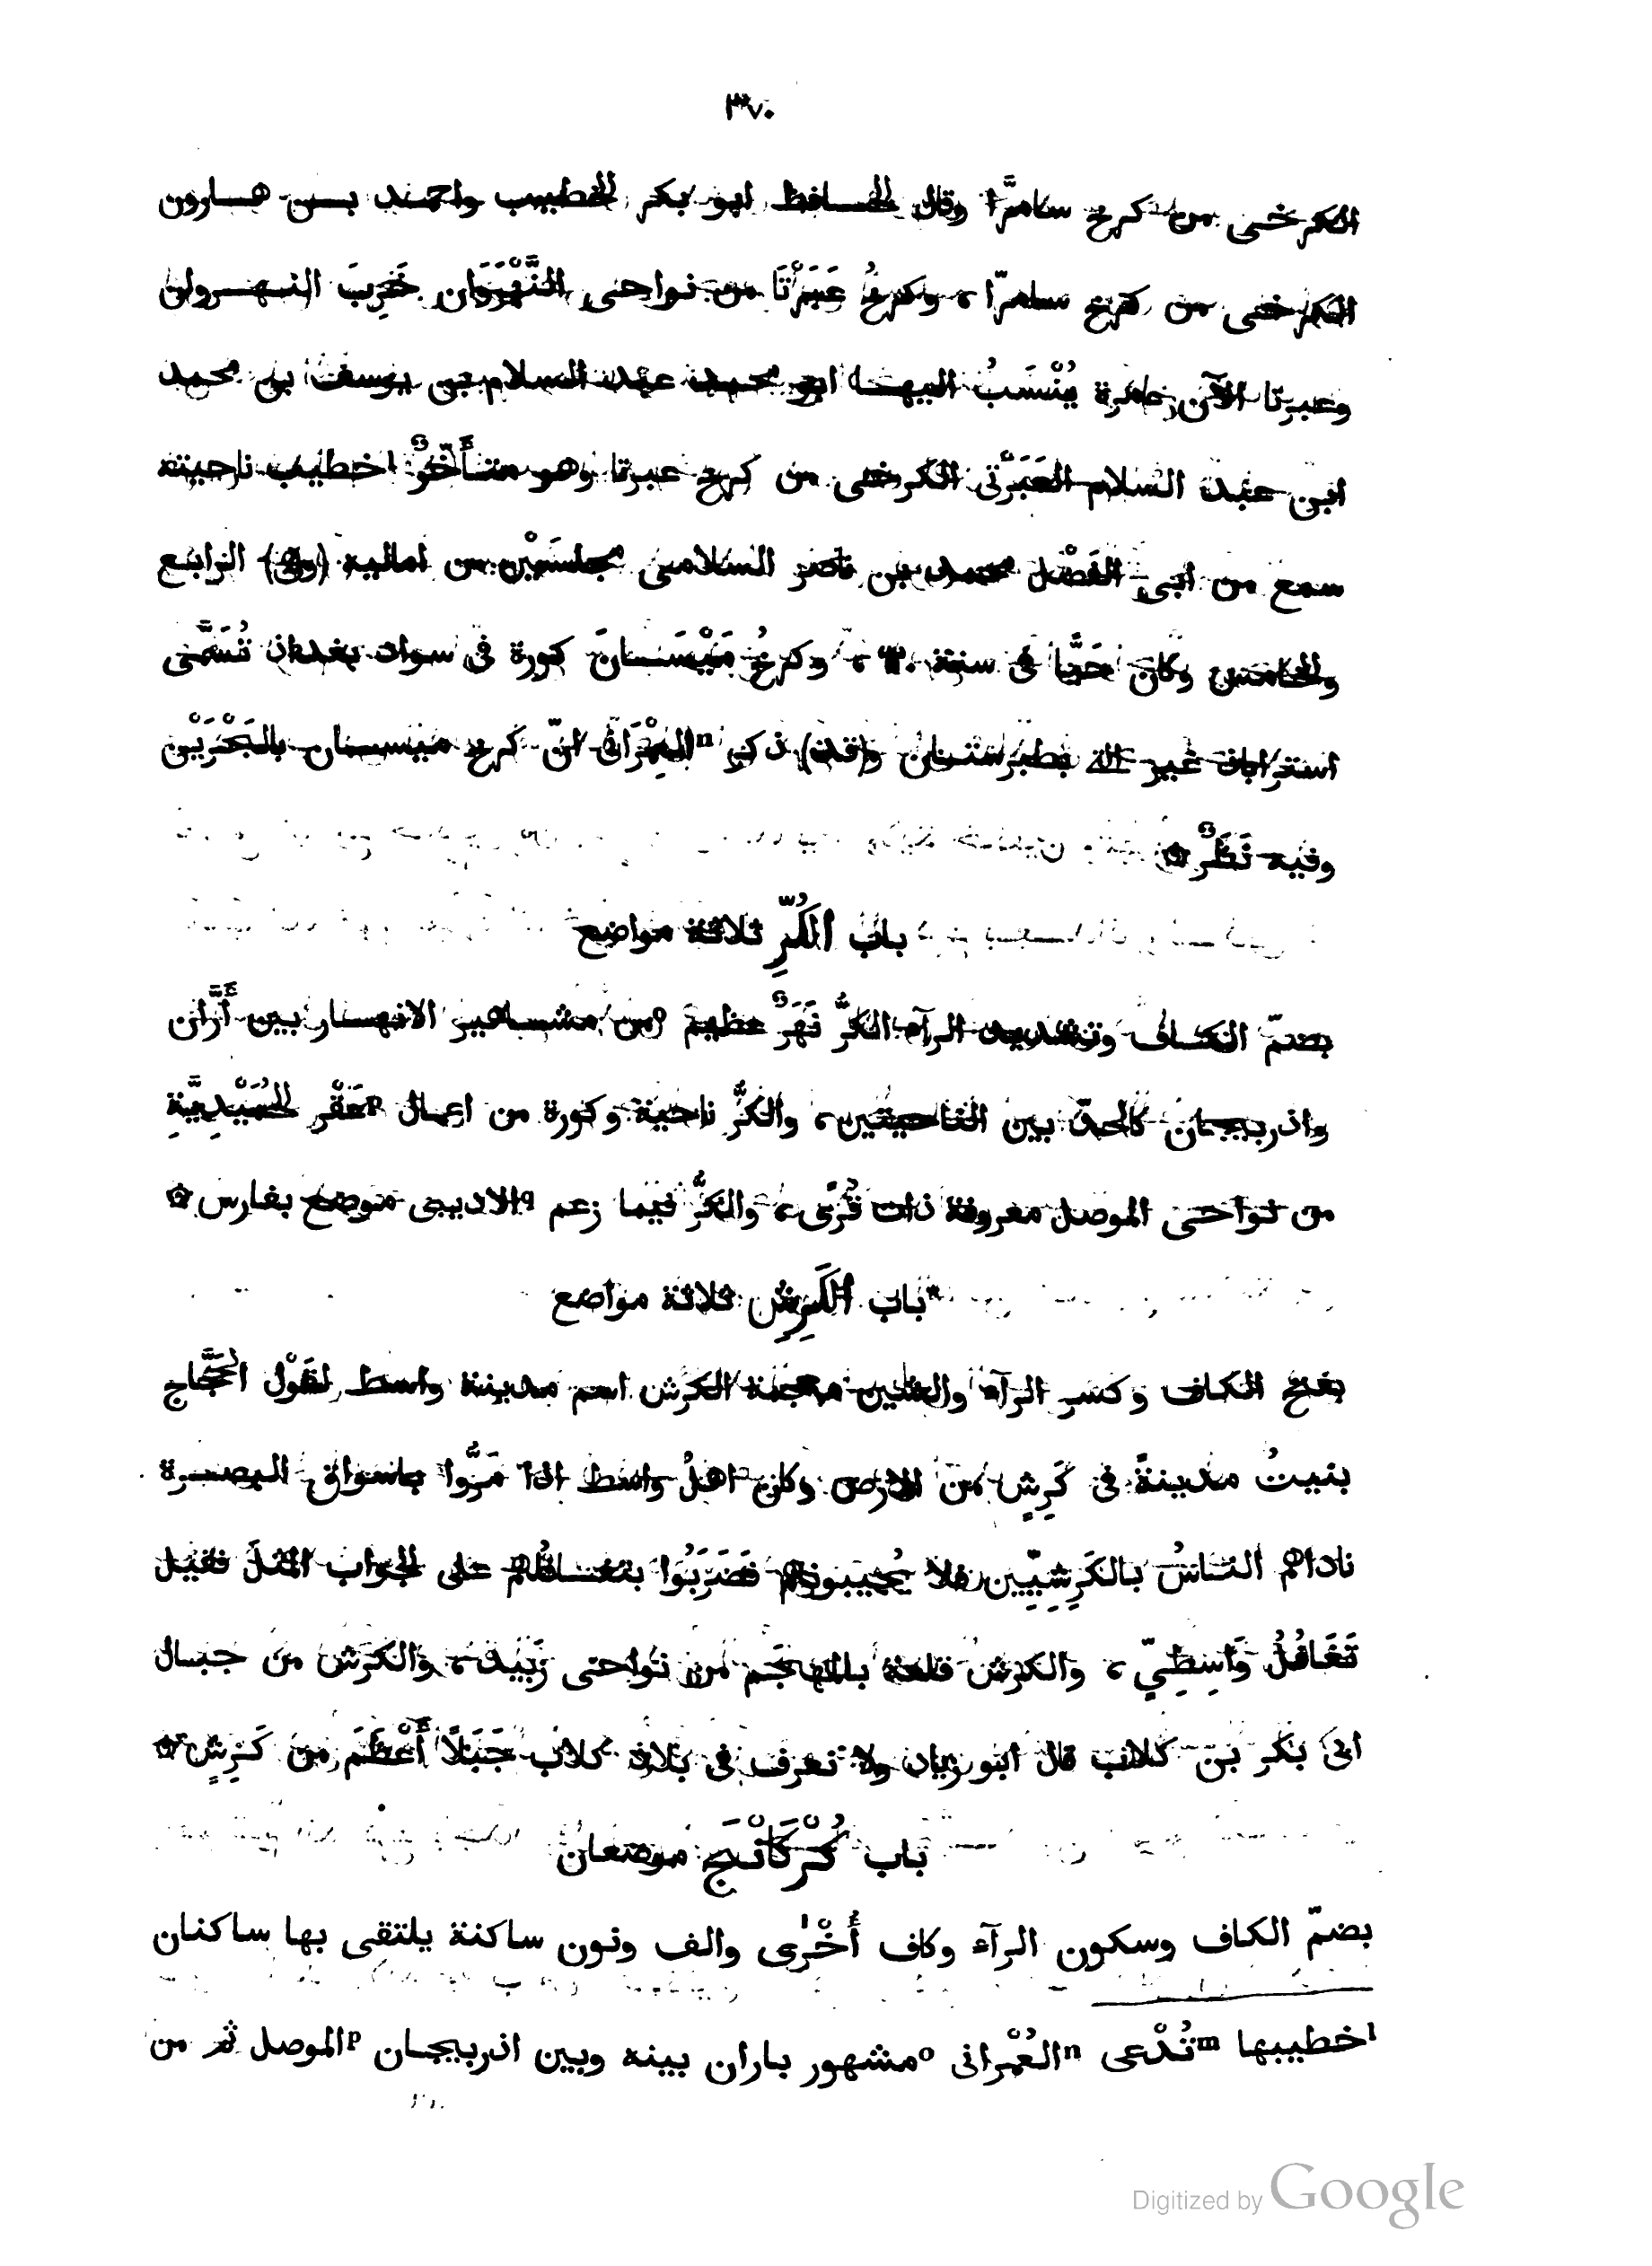 ٣٧٠
الكرخى من كرخ سامرّا وقال الحافظ ابو بكر الخطيب واحمد بن هارون
الكرخى من كرخ سامرّا، وكرخُ عَبَرْتَا من نواحى النَّهْرَوَان خَرِبَ النهروان
وعبرتا الآن عامرة يُنْسَبُ اليها ابو محمد عبد السلام بن يوسف بن محمد
ابن عبد السلام العَبَرْتى الكرخى من كرخ عبرتا وهو متأَخّرٌ اخطيب ناحيته
سمع من ابى الفَضْل محمد بن ناصر السلامى مجلسَيْن من اماليه (وهى) الرابع
والخامس وكان حَيًّا فى سنة ، وكرخُ مَيْسَانَ كورة فى سواد بغداد تُسَمَّى
استراباذ غير التى بطبرستان (وقد) ذكر nالعِمْرَانى انّ كرخ ميسان بالبَحْرَيْن
وفيه نَظَرٌ ۞
باب الكُرِّ ثلاثة مواضع
بضمّ الكاف وتشديد الرآء الكُرُّ نَهَرٌ عظيم oمن مشاهير الانهار بين أَرَّان
واذربيجان كالحدّ بين الناحيتين، والكُرُّ ناحية وكورة من اعمال pعَقْر الحُمَيْدِيَّةِ
من نواحى الموصل معروفة ذات قُرًى، والكُرُّ فيما زعم qالاديبى موضع بفارس ۞
*باب الكَرِشِ ثلاثة مواضع
بفتح الكاف وكسر الرآء والشين معجمة الكرش اسم مدينة واسط لقَوْل الحَجَّاج
بنيتُ مدينةً فى كَرِشٍ من الارض وكان اهلُ واسط اذا مَرُّوا باسواق البصرة
ناداهم الناسُ بالكَرِشِيِّين فلا يُجيبونهم فضَرَبُوا بتغافُلهم على الجواب المثلَ فقيل
تَغَافُلُ وَاسِطِيٍّ، والكرش قلعة بالمهجَم من نواحى زَبِيد، والكرش من جبال
ابى بكر بن كلاب قال ابو زياد ولا نعرف فى بلاد كلاب جَبَلًا أَعْظَمَ من كَرِشٍ ۞
باب كُرْكَانْجَ موضعان
بضمّ الكاف وسكون الرآء وكاف أُخْرٰى والف ونون ساكنة يلتقى بها ساكنان
lخطيبها mتُدْعى nالعُمْرانى oمشهور باران بينه وبين اذربيجان pالموصل ثم من
Digitized by Google